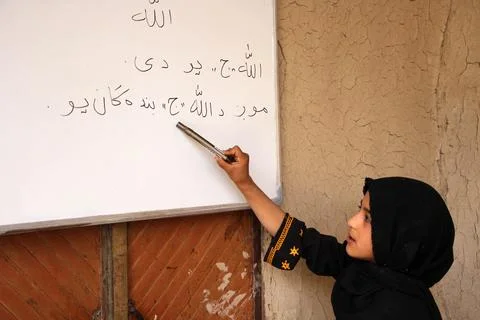 الله
الله "ج" یو دی.
موږ د الله "ج" بنده ګان یو.